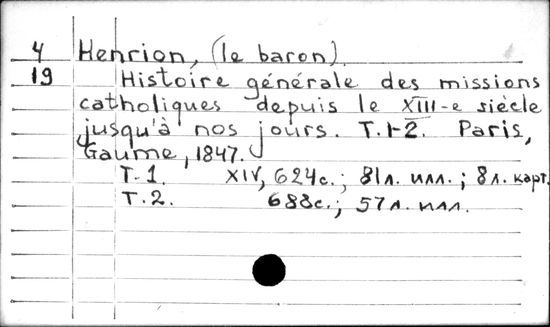 4 Henrion, (le baron).
19 Histoire générale des missions
catholiques depuis le XIII-e siècle
jusqu'à nos jours. T. 1-2. Paris,
Gaume, 1847.
T. 1. XIV, 624с.; 81л. илл.; 8л. карт.
T. 2. 688с.; 57л. илл.